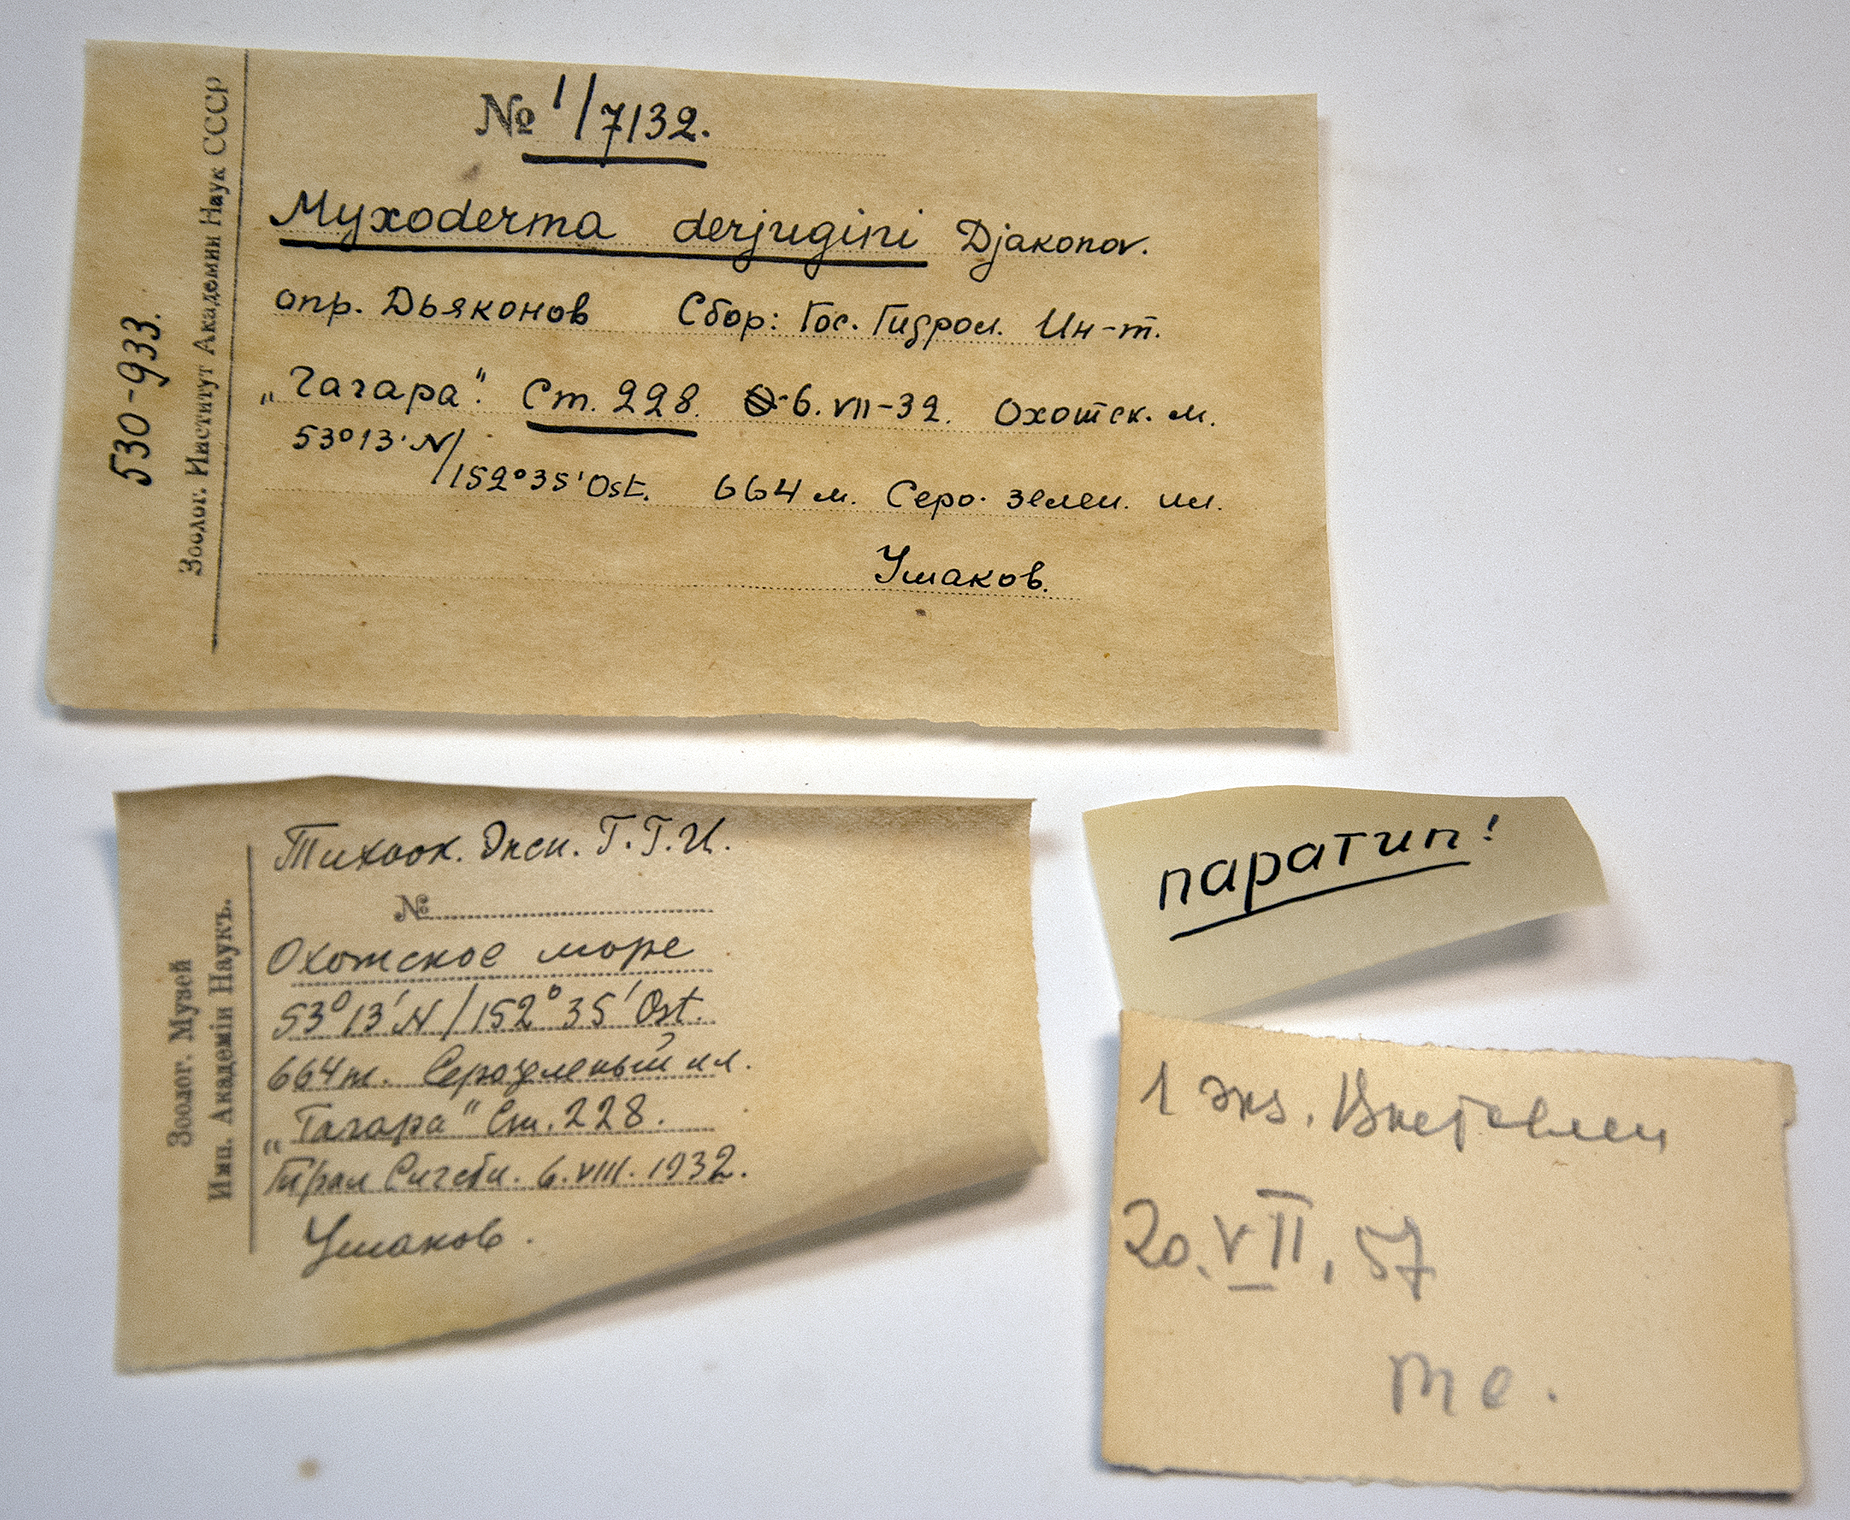 № 1/7132.
Myxoderma derjugini Djakonov.
опр. Дьяконов Сбор: Гос. Гидрол. Ин-т.
„Гагара“. Ст. 228. 6. VII-32. Охотск. м.
53°13'N/152°35'Ost. 664 м. Серо. зелен. ил.
Ушаков.
530-933.
Зоолог. Институт Академии Наук СССР
Тихоок. Эксп. Г.Г.И.
№
Охотское море
53°13'N/152°35'Ost.
664m. Серозеленый ил.
„Гагара“ Ст. 228.
Трал Сигсби. 6. VIII. 1932.
Ушаков.
Зоолог. Музей
Имп. Академіи Наукъ.
паратип!
1 экз.
20. VII, 57